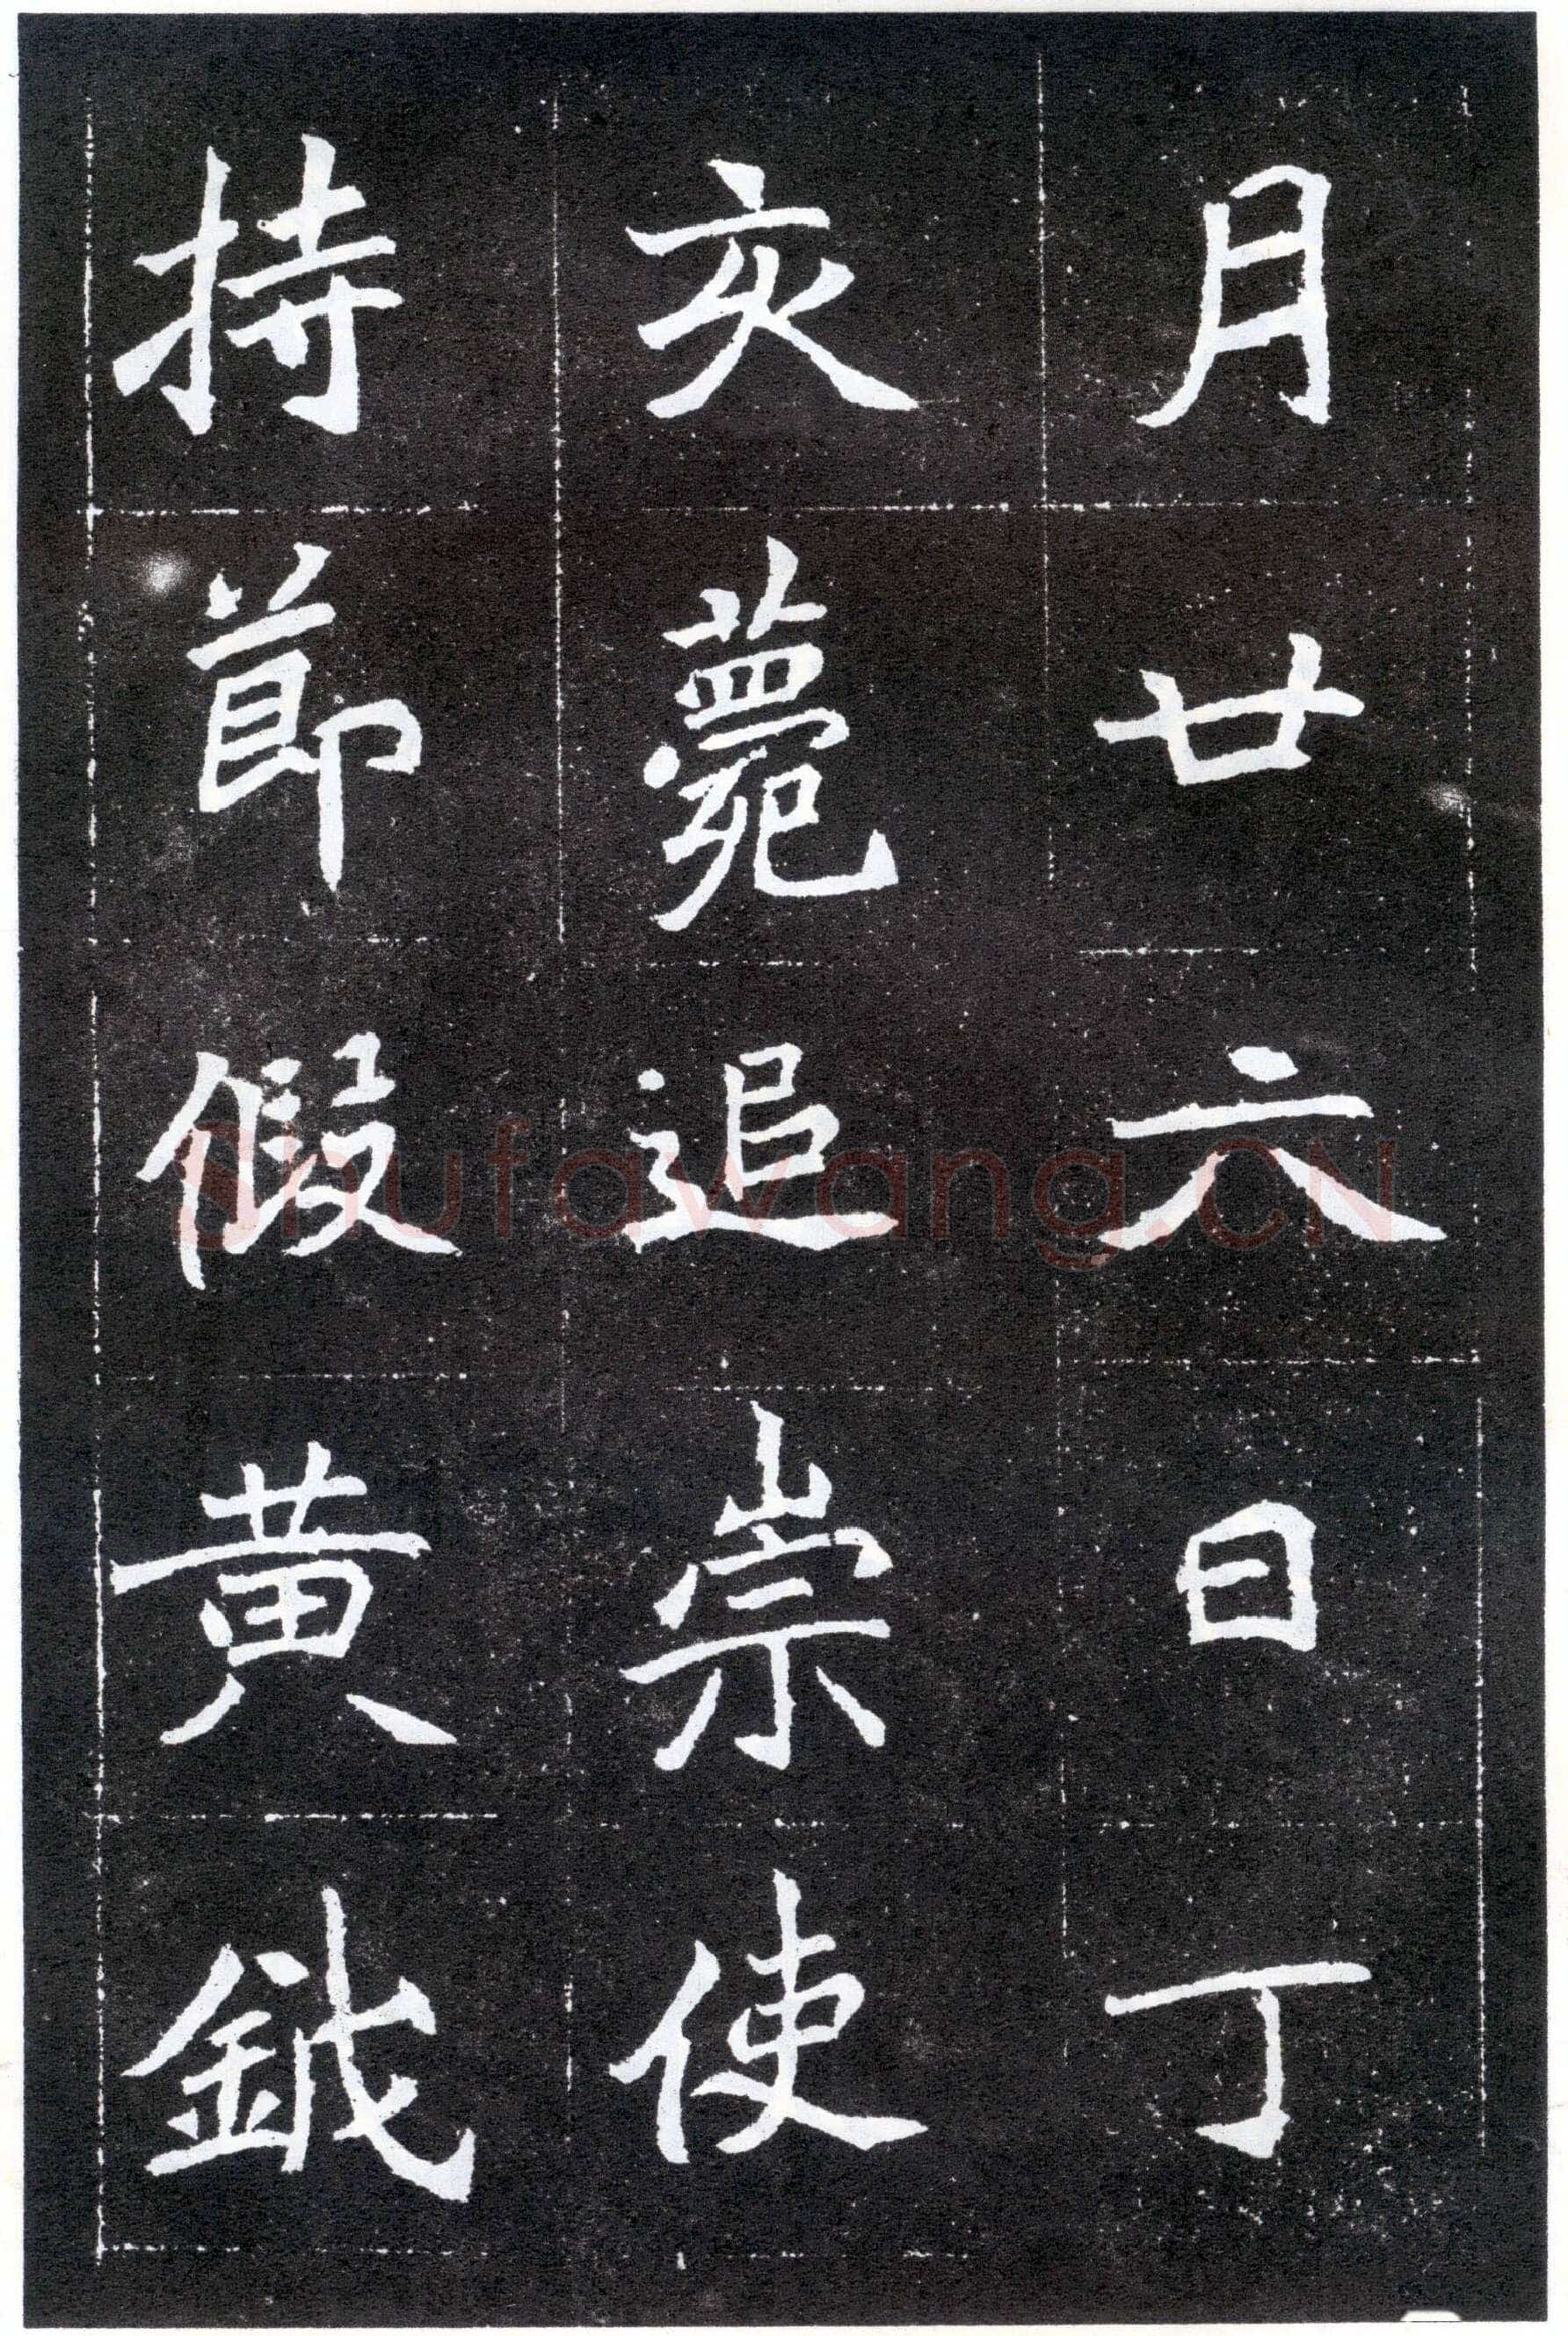 月廿六日丁
亥薨追崇使
持節假黄鉞
Shufawang.CN